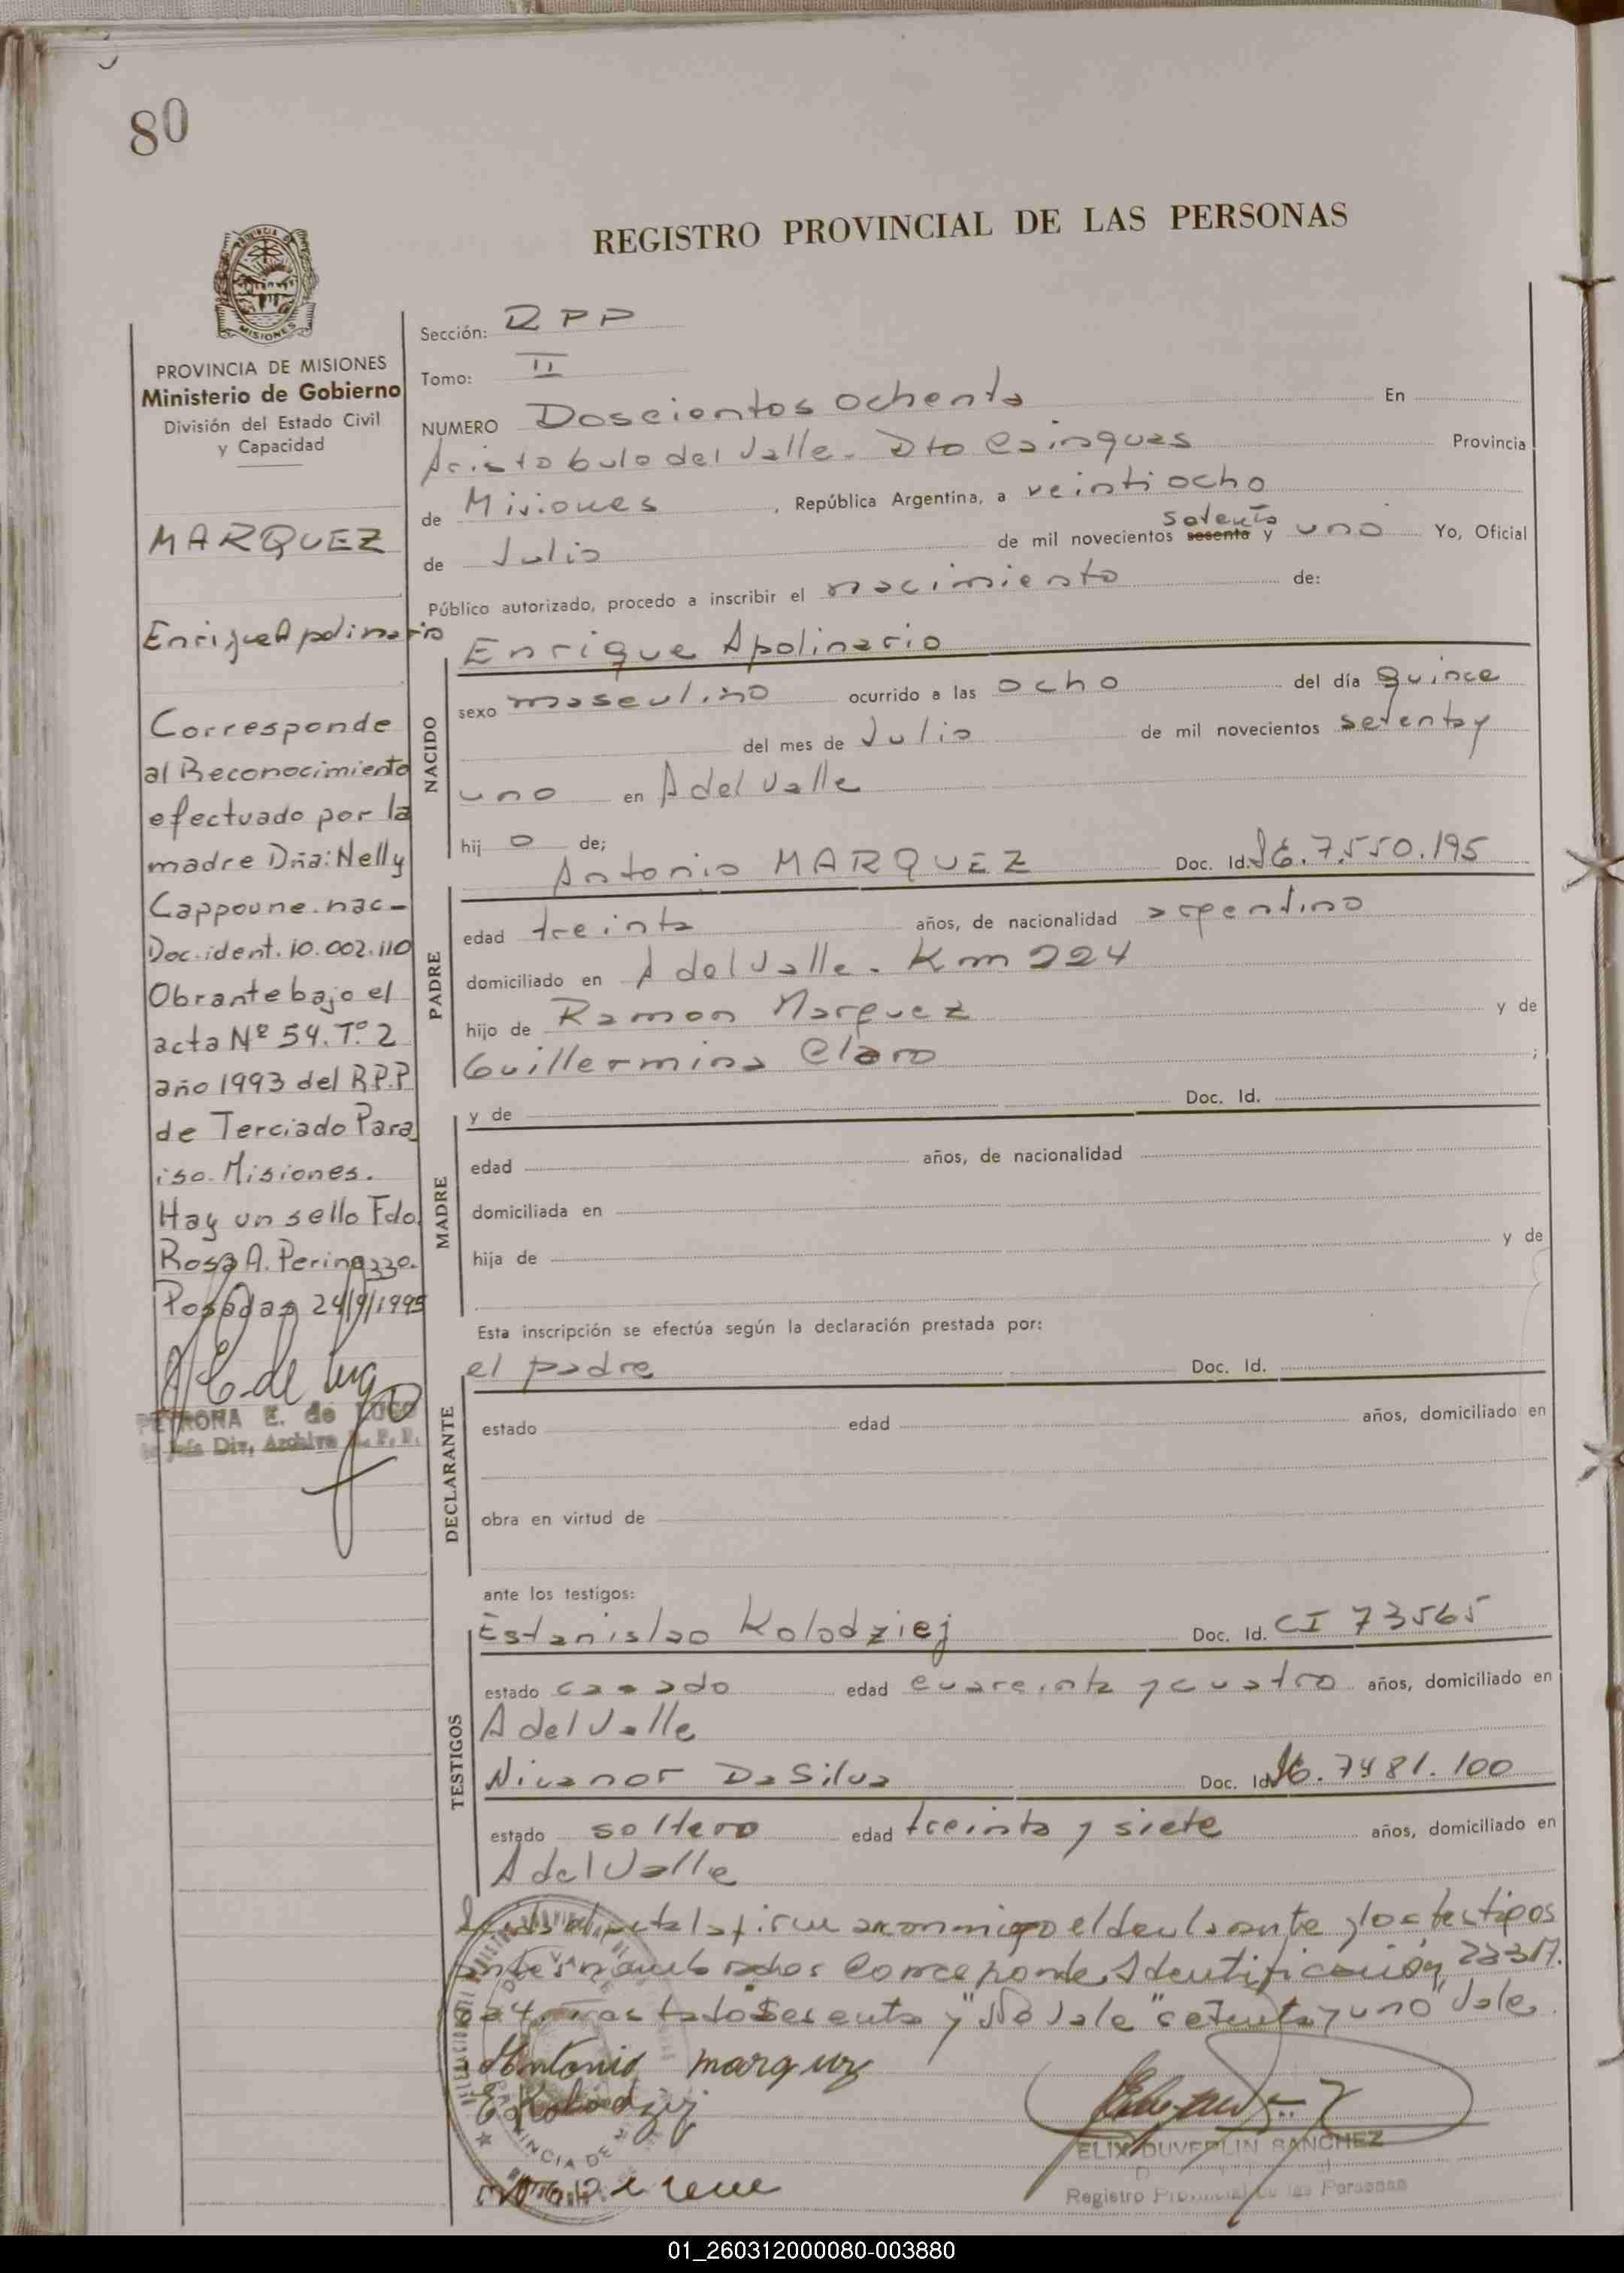 80
REGISTRO PROVINCIAL DE LAS PERSONAS
MISIONES
PROVINCIA DE MISIONES
Ministerio de Gobierno
División del Estado Civil
y Capacidad
MARQUEZ
Enrique Apolinario
Corresponde
al Reconocimiento
efectuado por la
madre Dña: Nelly
Cappoune. nac-
Doc. ident. 10.002.110
Obrante bajo el
acta Nº 54. Tº. 2
año 1993 del R.P.P
de Terciado Para
iso. Misiones.
Hay un sello Fdo.
Rosa A. Perinazzo.
Posadas 24/9/1995
PETRONA E. de LUGO
Jefa Div. Archivo R. P. P.
Sección: RPP
Tomo: II
NUMERO Doscientos ochenta En
Aristobulo del Valle. Dto Cainguas Provincia
de Misiones, República Argentina, a veintiocho
de Julio de mil novecientos sesenta setenta y uno Yo, Oficial
Público autorizado, procedo a inscribir el nacimiento de:
NACIDO
Enrique Apolinario
sexo masculino ocurrido a las ocho del día quince
del mes de Julio de mil novecientos setenta y
uno en A del Valle
hij o de;
PADRE
Antonio MARQUEZ Doc. Id. 7.550.195
edad treinta años, de nacionalidad argentino
domiciliado en A del Valle. Km 224
hijo de Ramon Marquez y de
Guillermina Claro ;
MADRE
y de Doc. Id.
edad años, de nacionalidad
domiciliada en
hija de y de
Esta inscripción se efectúa según la declaración prestada por:
DECLARANTE
el padre Doc. Id.
estado edad años, domiciliado en
obra en virtud de
ante los testigos:
TESTIGOS
Estanislao Kolodziej Doc. Id. CI 73565
estado casado edad cuarenta y cuatro años, domiciliado en
A del Valle
Nicanor DaSilva Doc. Id. 7481.100
estado soltero edad treinta y siete años, domiciliado en
A del Valle
Leida el acta la firman conmigo el declarante y los testigos
antes nombrados Corresponde Identificación
testado sesenta y "No vale" "setenta y uno" Vale.
Antonio marquez
E Kolodziej
ELIX DUVERLIN SANCHEZ
Registro Provincial de las Personas
01_260312000080-003880